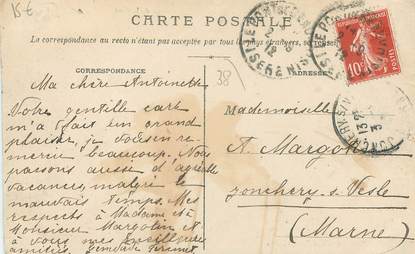 15€
CARTE POSTALE
La correspondance au recto n'étant pas acceptée par tous les pays étrangers, se
CORRESPONDANCE
ADRESSE
38
10c
Ma chère Antoinette
Votre gentille carte
m'a fait un grand
plaisir, je vous en re-
mercie beaucoup. Nous
passons aussi d'agréable
vacances, malgré le
mauvais temps. Mes
respects à Madame et à
Monsieur Margotin et
à vous mes meilleures
amitiés.
Mademoiselle
A. Margotin
Jonchery s. Vesle
(Marne)